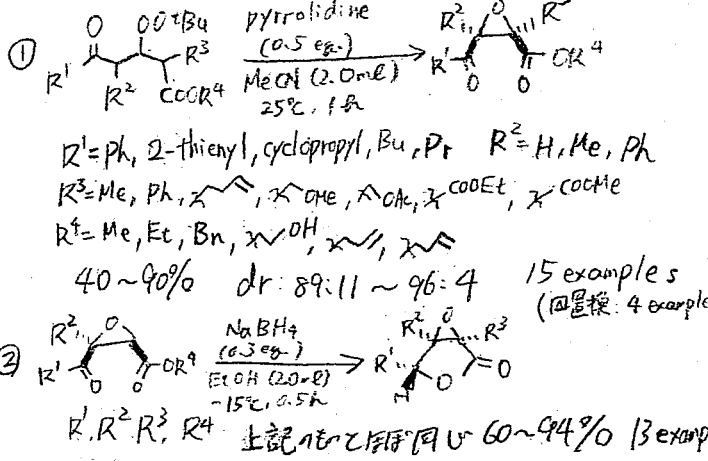 ① R¹ O OOᵗBu R³ R² COOR⁴ pyrrolidine R² O R³
(0.5 eq.)
MeCN (2.0 ml) R¹ O O OR⁴
25℃, 1 h
R¹ = Ph, 2-thienyl, cyclopropyl, Bu, Pr R² = H, Me, Ph
R³ = Me, Ph, OMe, OAc, COOEt, COOMe
R⁴ = Me, Et, Bn, OH
40~90% dr : 89:11 ~ 96:4 15 examples
(四置換: 4 example
② R² O R¹ O O OR⁴ NaBH₄ R² O R³
(0.3 eq.)
EtOH (2.0 ml) R¹ H O O
-15℃, 0.5 h
R¹, R², R³, R⁴ 上記のものとほぼ同じ 60~94% 13 examp